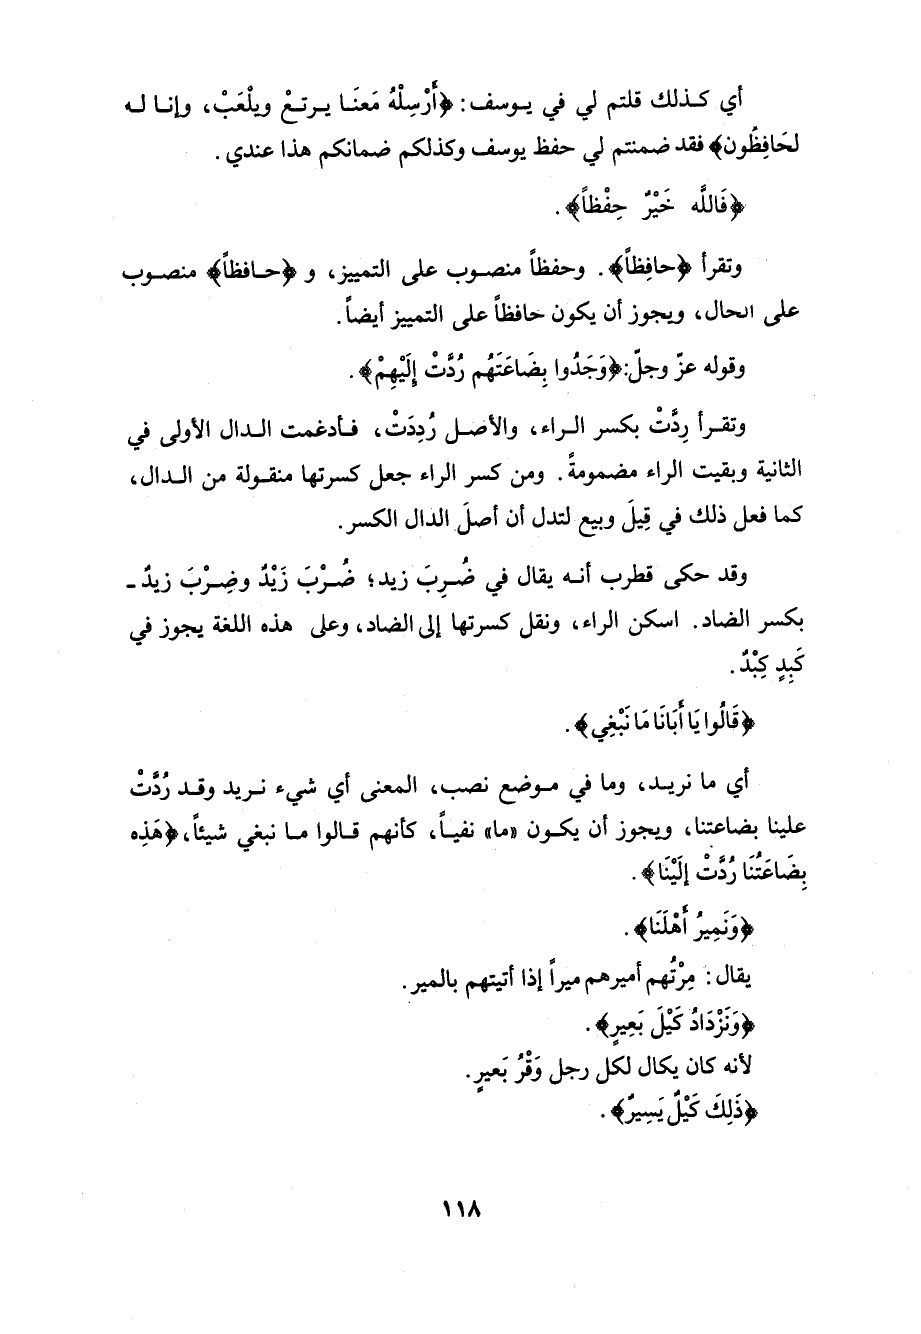 أي كـذلك قلتم لي في يـوسف: ﴿أَرْسِلْهُ مَعَنَـا يـرتـعْ ويلْعَبْ، وإنـا لـه
لحَافِظُون﴾ فقد ضمنتم لي حفظ يوسف وكذلكم ضمانكم هذا عندي.
﴿فَاللَّه خَيْرٌ حِفْظاً﴾.
وتقرأ ﴿حافِظاً﴾. وحفظاً منصـوب على التمييز، و ﴿حـافظاً﴾ منصـوب
على الحال، ويجوز أن يكون حافظاً على التمييز أيضاً.
وقوله عزّ وجلّ:﴿وَجَدُوا بِضَاعَتَهُم رُدَّتْ إِلَيْهِمْ﴾.
وتقـرأ رِدَّتْ بكسر الـراء، والأصـل رُدِدَتْ، فـأدغمت الـدال الأولى في
الثانية وبقيت الراء مضمومةً. ومن كسر الراء جعل كسرتها منقـولة من الـدال،
كما فعل ذلك في قِيلَ وبيع لتدل أن أصلَ الدال الكسر.
وقد حكى قطرب أنـه يقال في ضُـرِبَ زيد؛ ضُـرْبَ زَيْدٌ وضِـرْبَ زيدٌ ـ
بكسر الضاد. اسكن الراء، ونقل كسرتها إلى الضاد، وعلى هذه اللغة يجوز في
كَبِدٍ كِبْدٌ.
﴿قَالُوا يَا أَبَانَا مَا نَبْغِي﴾.
أي ما نريـد، وما في مـوضع نصب، المعنى أي شيء نـريد وقـد رُدَّتْ
علينا بضاعتنا، ويجوز أن يكـون «ما» نفيـاً، كأنهم قـالوا مـا نبغي شيئاً،﴿هَذِه
بِضَاعَتُنَا رُدَّتْ إلَيْنَا﴾.
﴿وَنَمِيرُ أَهْلَنَا﴾.
يقال: مِرْتُهم أميرهم ميراً إذا أتيتهم بالمير.
﴿وَنَزْدَادُ كَيْلَ بَعِيرٍ﴾.
لأنه كان يكال لكل رجل وَقْرُ بَعيرٍ.
﴿ذَلِكَ كَيْلٌ يَسِيرٌ﴾.
١١٨